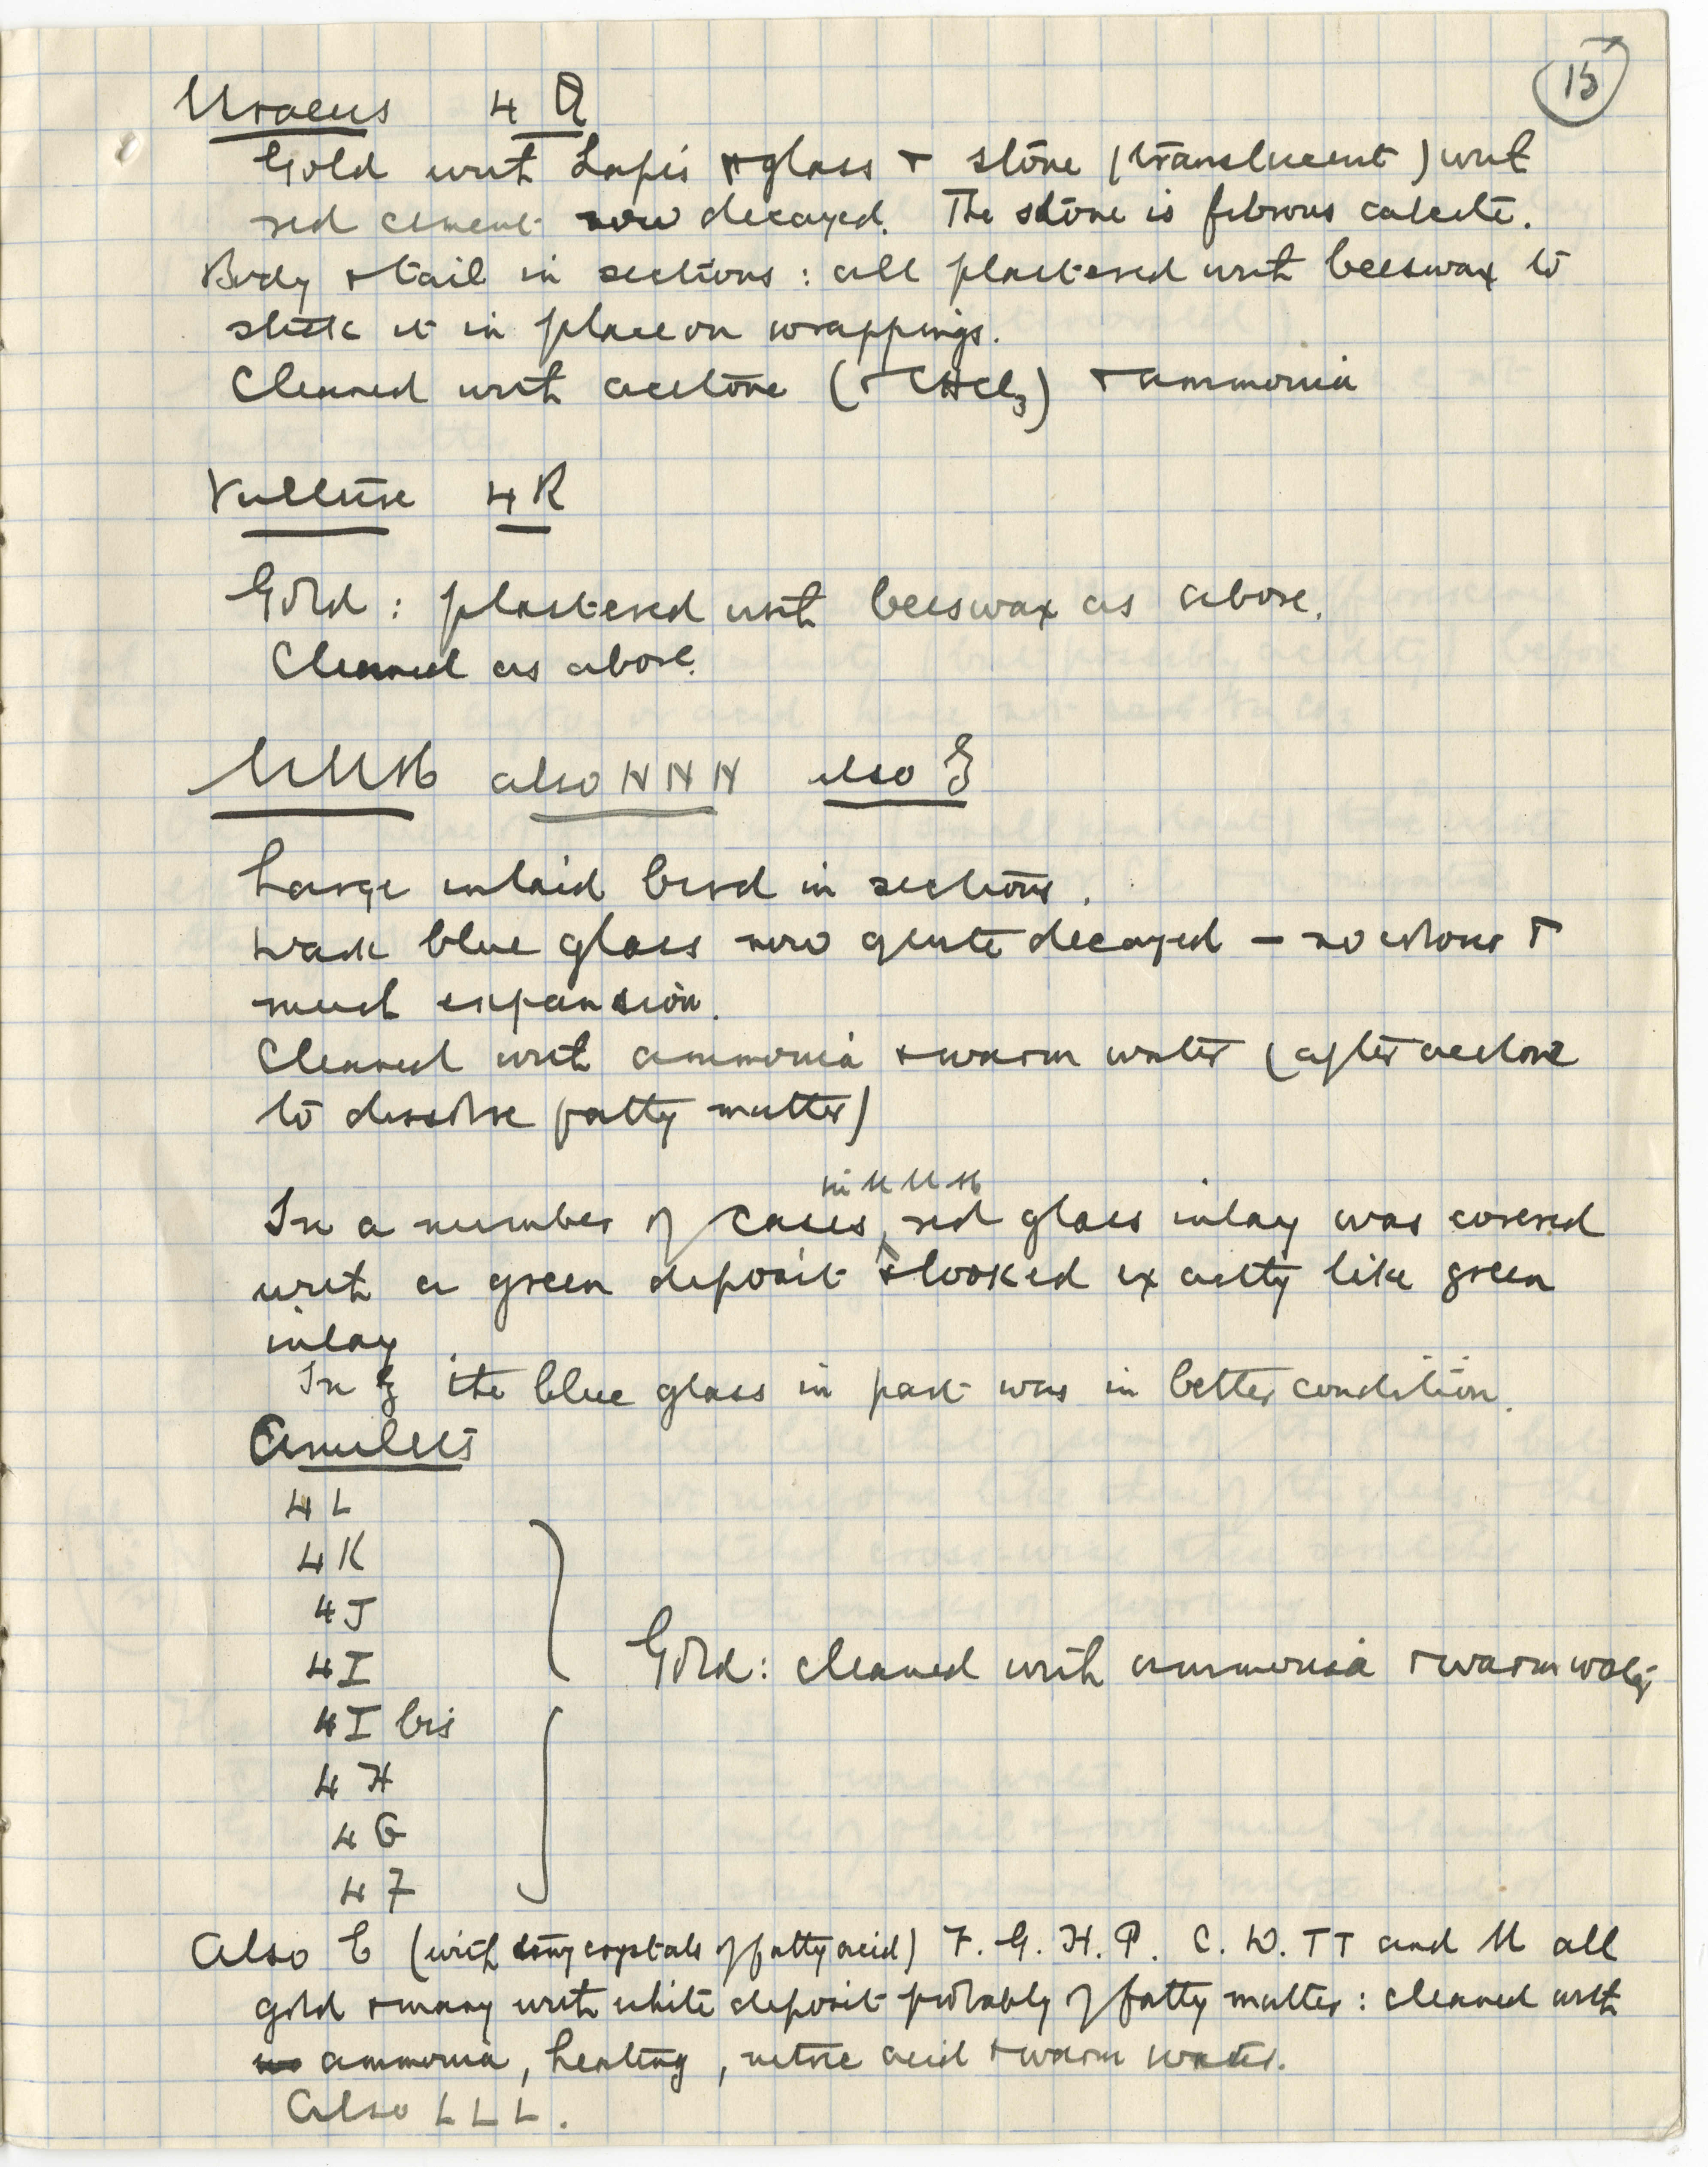 15
Uraeus 4 Q
Gold with Lapis + glass + stone (translucent) with
red cement now decayed. The stone is fibrous calcite.
Body + tail in sections : all plastered with beeswax to
stick it in place on wrappings.
Cleaned with acetone (+ CHCl3) + ammonia
Vulture 4R
Gold : plastered with beeswax as above.
Cleaned as above.
MMM also NNN also
Large inlaid bird in sections.
Dark blue glass now quite decayed – no colour +
much expansion.
Cleaned with ammonia + warm water (after acetone
to dissolve fatty matter)
in MMM
In a number of cases, red glass inlay was covered
with a green deposit + looked exactly like green
inlay
In the blue glass in part was in better condition.
Amulets
4 L
4 K
4 J
4 I
Gold : cleaned with ammonia + warm water
4 I bis
4 H
4 G
4 F
Also E (with long crystals of fatty acid) F. G. H. P. C. D. TT and M all
gold + many with white deposit probably of fatty matter : cleaned with
ammonia, heating, nitric acid + warm water.
Also LLL.